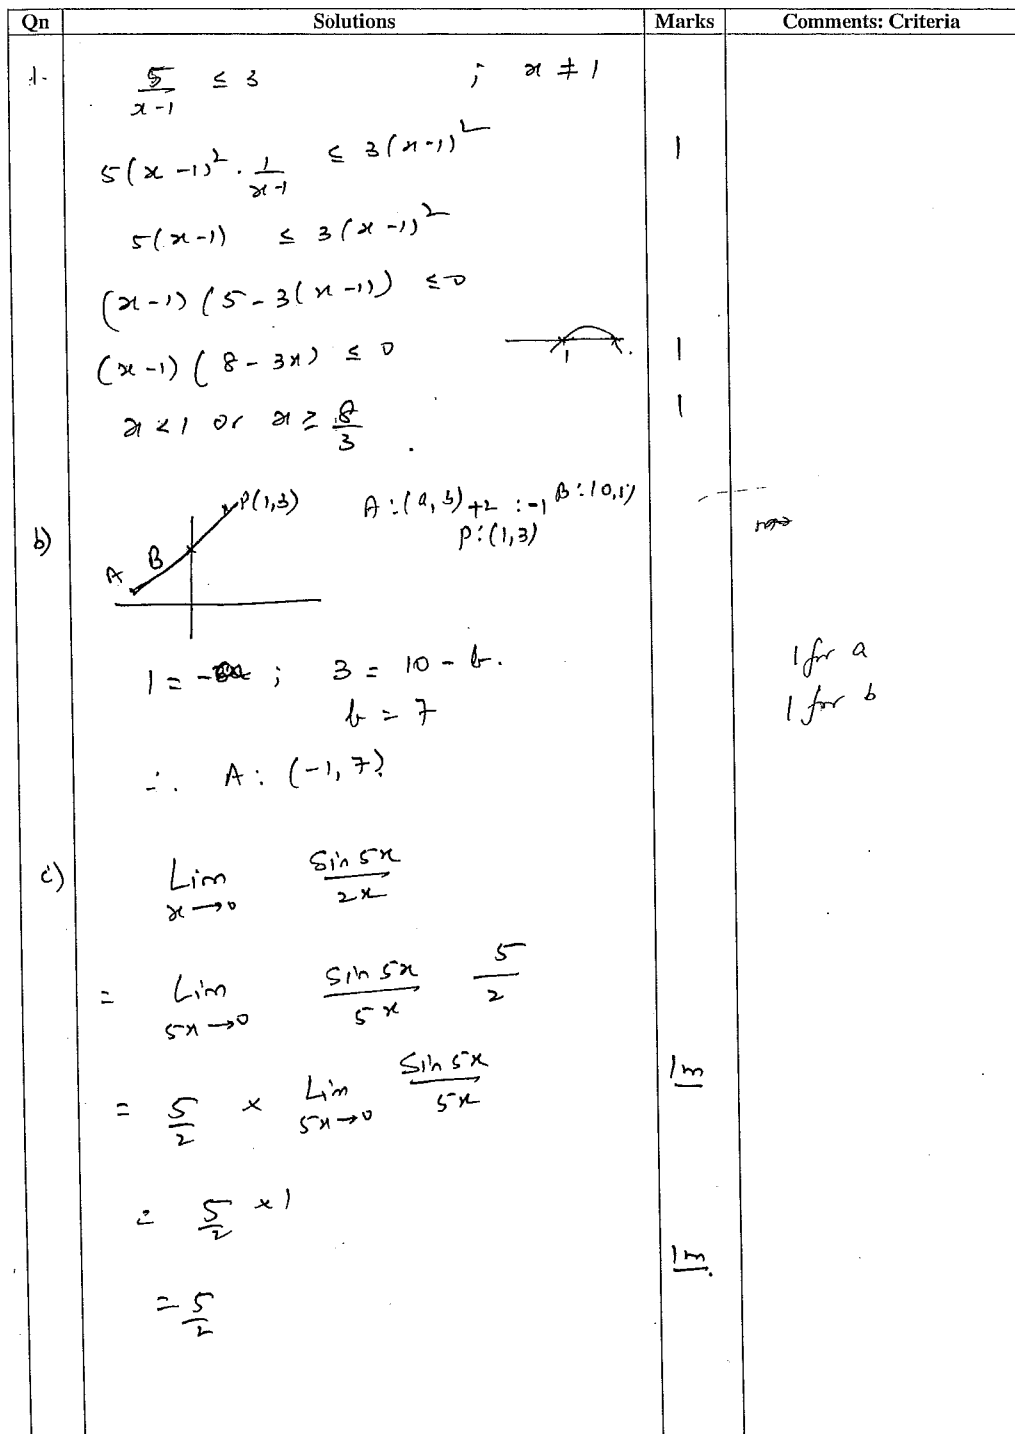 Qn Solutions Marks Comments: Criteria
1. 5/(x-1) ≤ 3 ; x ≠ 1
5(x-1)² · 1/(x-1) ≤ 3(x-1)² 1
5(x-1) ≤ 3(x-1)²
(x-1)(5-3(x-1)) ≤ 0
(x-1)(8-3x) ≤ 0 1 1
x < 1 or x ≥ 8/3 . 1
b) A B P(1,3) A:(a,b) +2 : -1 B:(0,1)
P:(1,3)
1 = - ; 3 = 10 - b. 1 for a
b = 7 1 for b
∴ A: (-1, 7)
c) Lim x→0 Sin 5x / 2x
= Lim 5x→0 Sin 5x / 5x 5/2
= 5/2 × Lim 5x→0 Sin 5x / 5x 1m
= 5/2 × 1
1m.
= 5/2